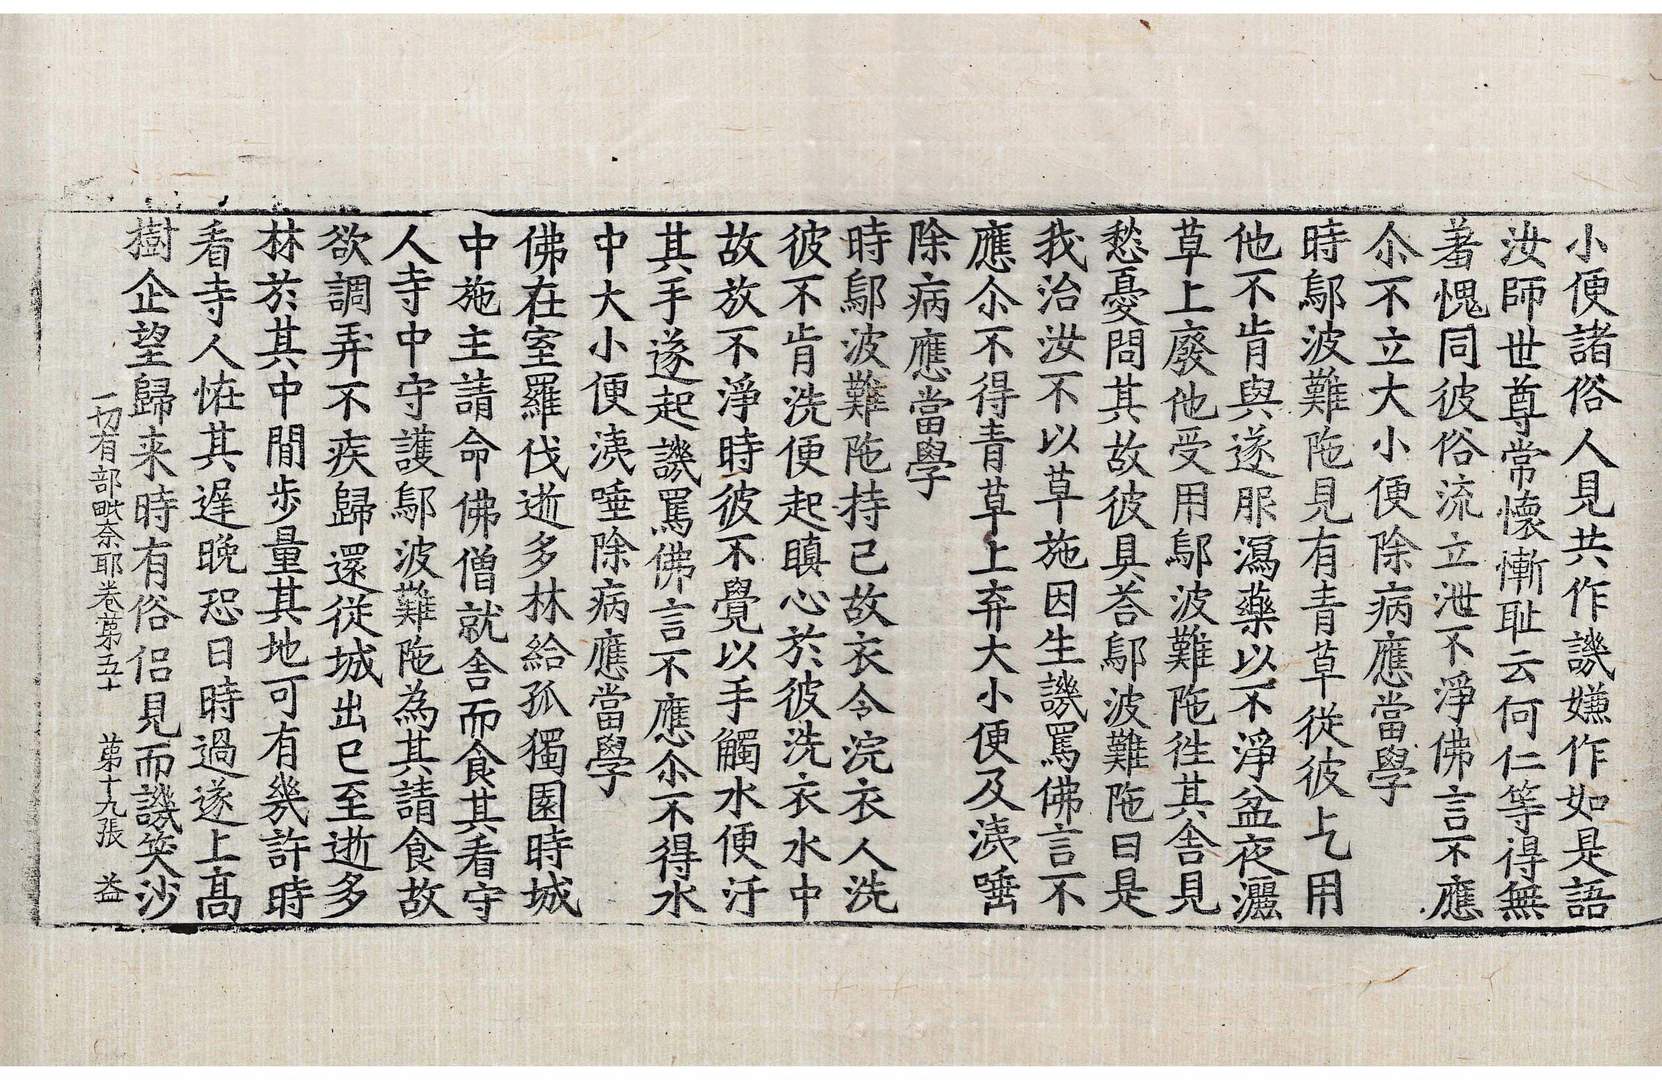 小便諸俗人見共作譏嫌作如是語
汝師世尊常懷慚耻云何仁等得無
著愧同彼俗流立泄不淨佛言不應
尒不立大小便除病應當學
時鄔波難陁見有青草従彼乞用
他不肯與遂服瀉藥以不淨盆夜灑
草上廢他受用鄔波難陁徃其舍見
愁憂問其故彼具荅鄔波難陁曰是
我治汝不以草施因生譏罵佛言不
應尒不得青草上弃大小便及洟唾
除病應當學
時鄔波難陁持己故衣令浣衣人洗
彼不肯洗便起瞋心於彼洗衣水中
故放不淨時彼不覺以手觸水便汙
其手遂起譏罵佛言不應尒不得水
中大小便洟唾除病應當學
佛在室羅伐逝多林給孤獨園時城
中施主請命佛僧就舍而食其看守
人寺中守護鄔波難陁為其請食故
欲調弄不疾歸還従城出已至逝多
林於其中閒歩量其地可有幾許時
看寺人恠其遅晚恐日時過遂上高
樹企望歸来時有俗侶見而譏笑沙
一切有部毗奈耶卷第五十 第十九張 益